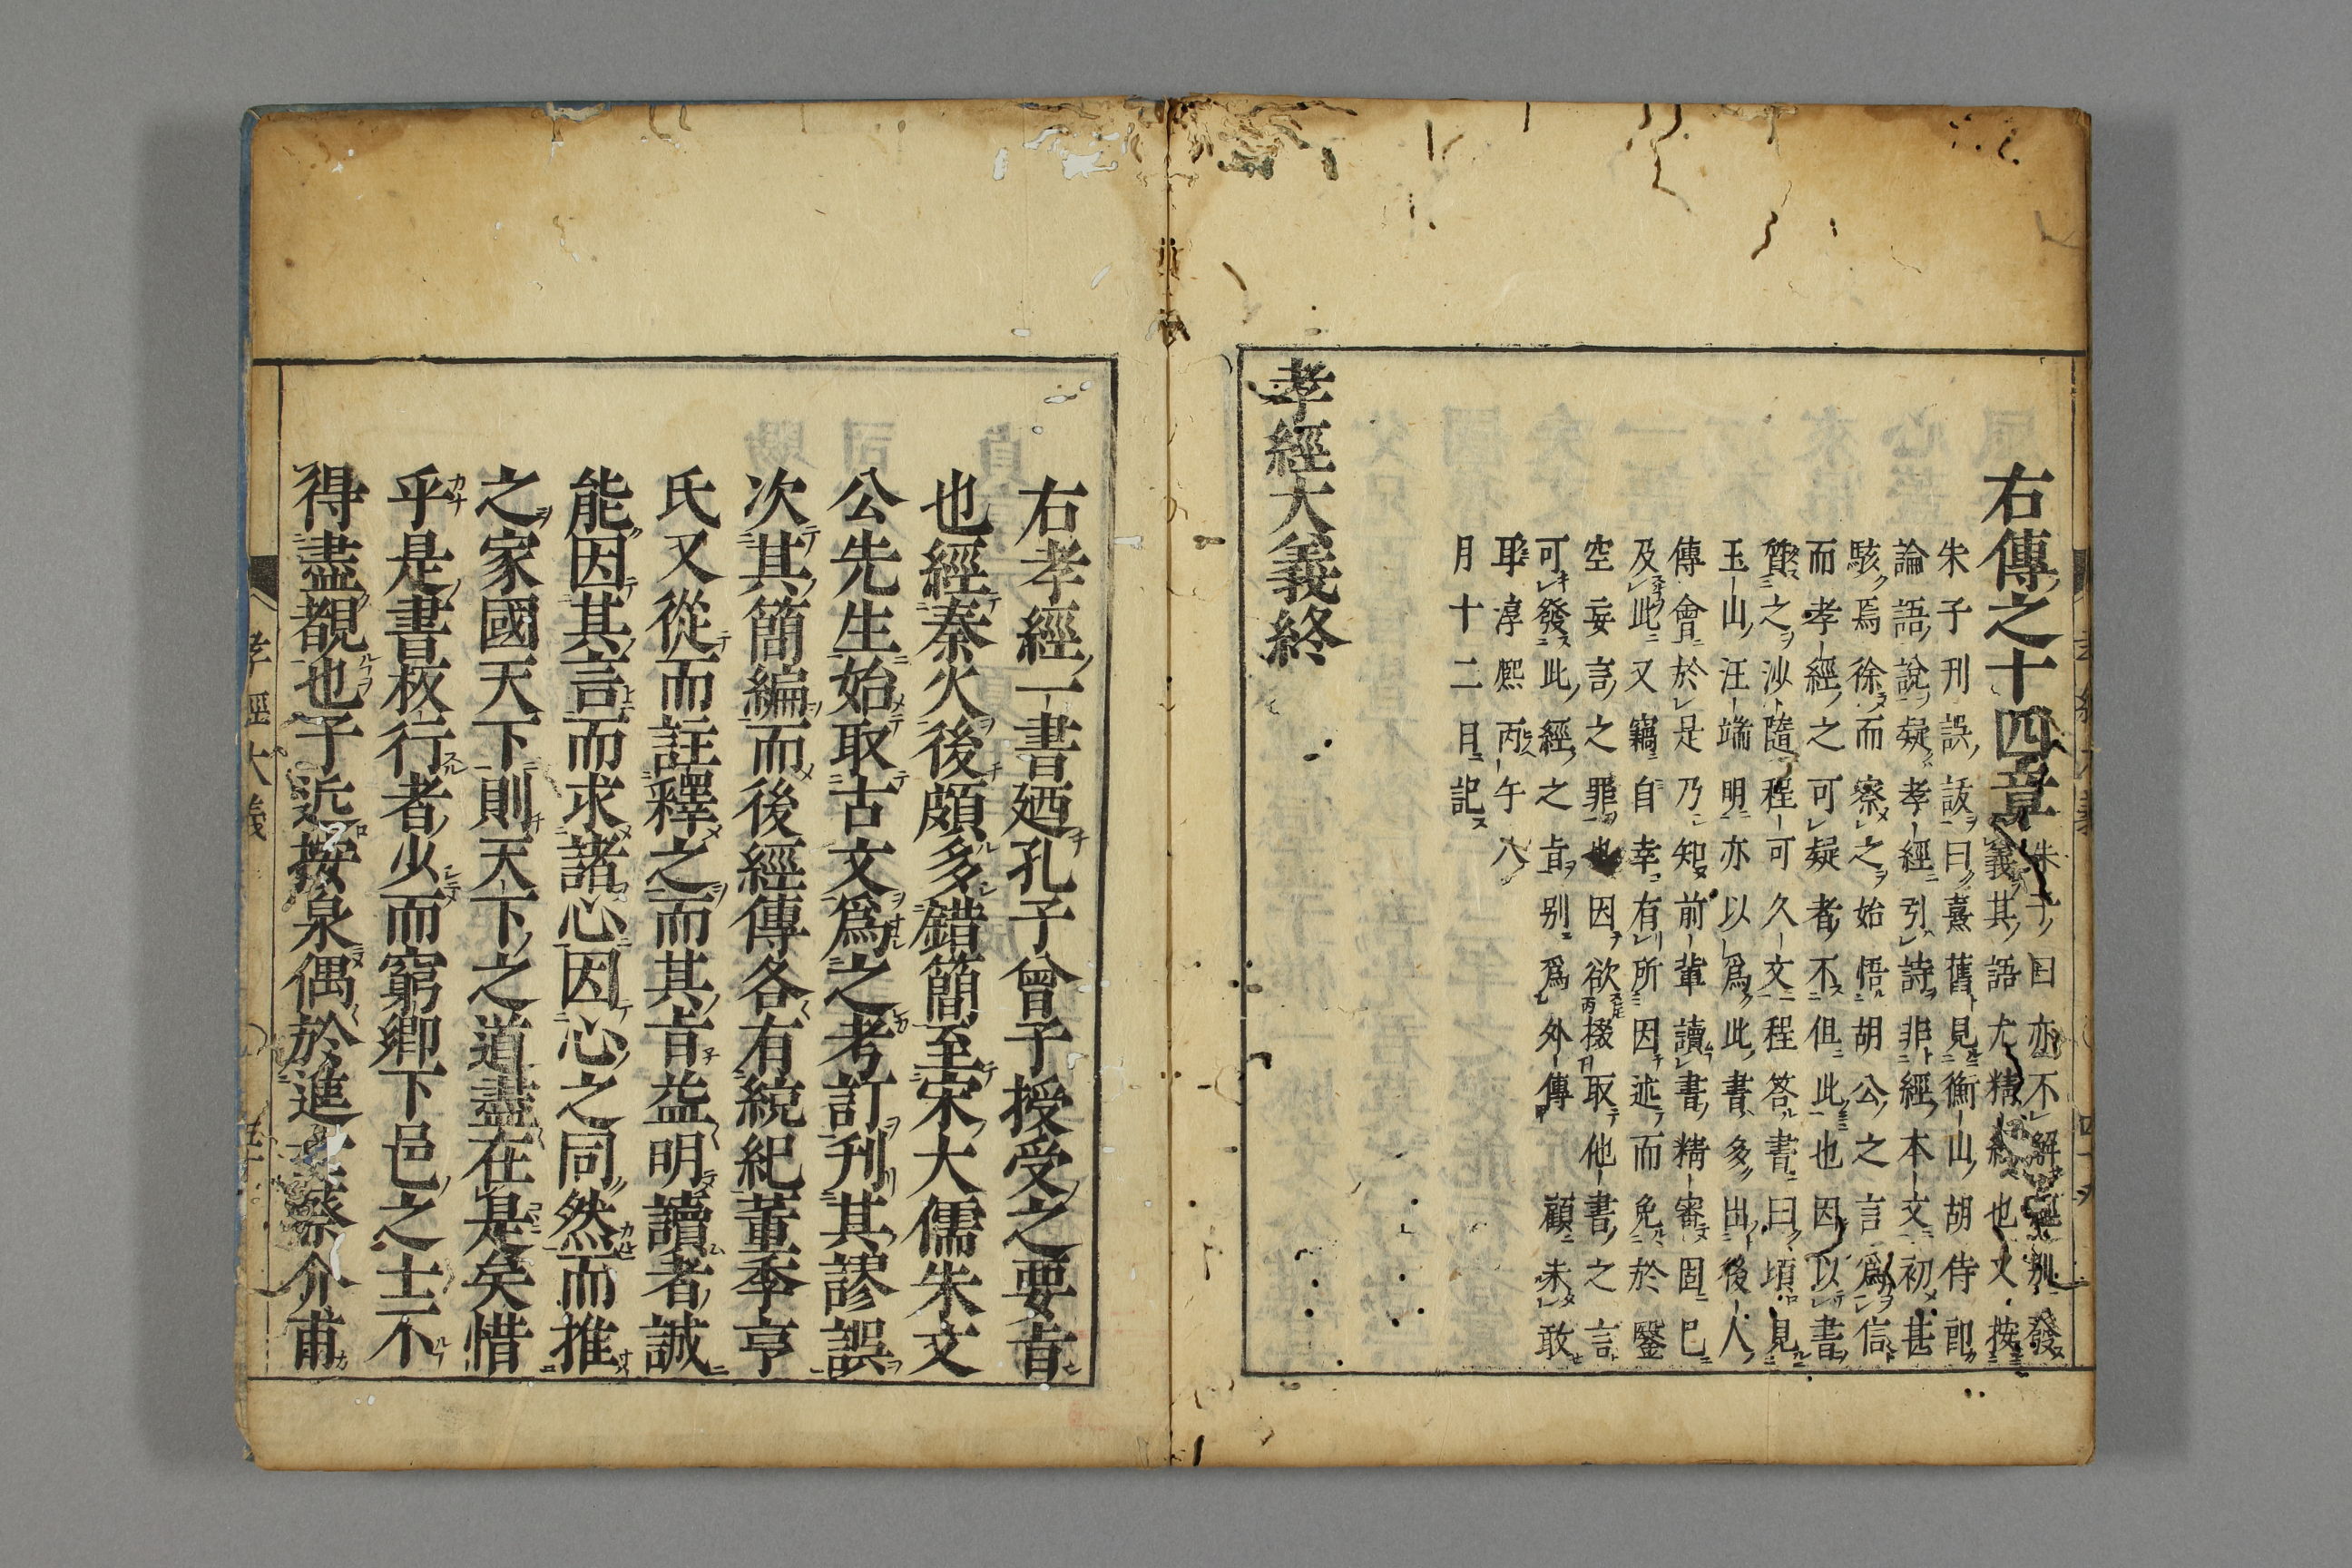 右傳之十四章 朱子曰亦不解經別發
義其語尤精約也又按
朱子刊誤跋曰熹舊見衡山胡侍郎
論語說疑孝經引詩非經本文初甚
駭焉徐而察之始悟胡公之言爲信
而孝經之可疑者不但此也因以書
質之沙隨程可久文程答書曰頃見
玉山汪端明亦以爲此書多出後人
傳會於是乃知前輩讀書精審固已
及此又竊自幸有所因述而免於鑿
空妄言之罪也因欲掇取他書之言
可發此經之旨別爲外傳顧未敢
耳淳熙丙午八
月十二日記
孝經大義終
右孝經一書廼孔子曾子授受之要旨
也經秦火後頗多錯簡至宋大儒朱文
公先生始取古文爲之考訂刋其謬誤
次其簡編而後經傳各有統紀董季亨
氏又從而註釋之而其旨益明讀者誠
能因其言而求諸心因心之同然而推
之家國天下則天下之道盡在是矣惜
乎是書板行者少而窮鄉下邑之士不
得盡覩也予近按泉偶於進士蔡介甫
孝經大義